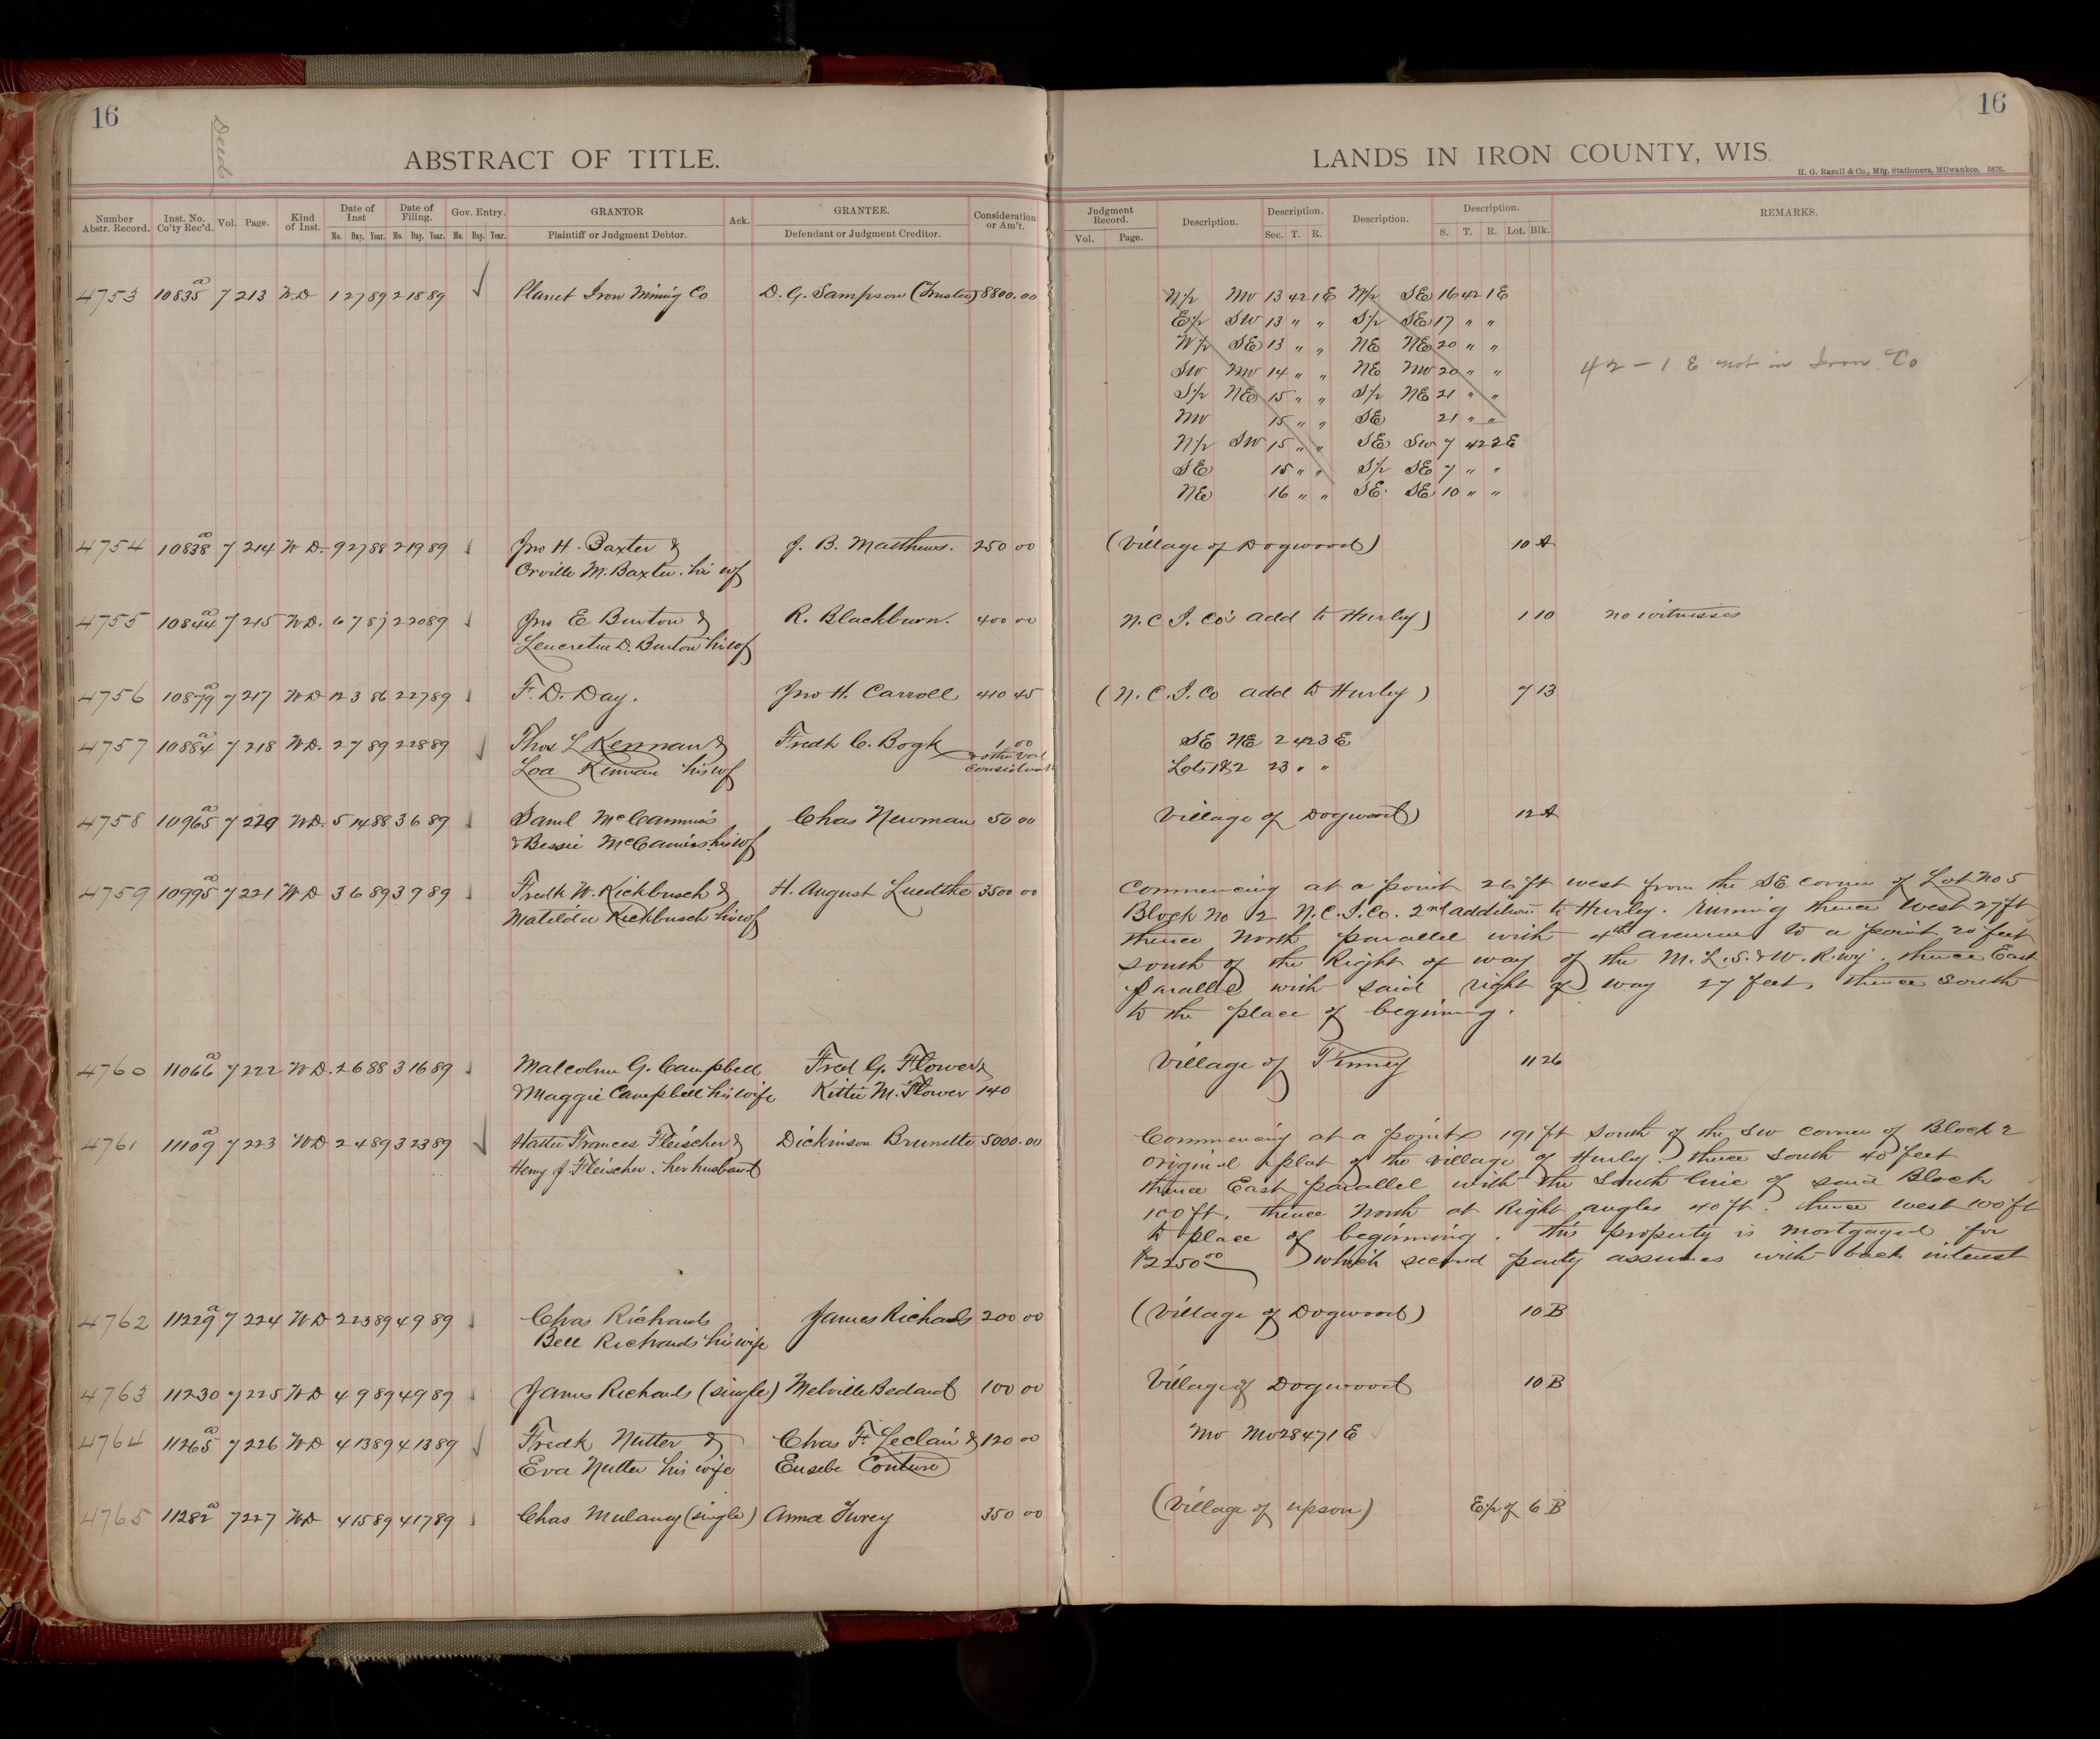 16
Deeds
ABSTRACT OF TITLE.
Number Abstr. Record. Inst. No. Co'ty Rec'd. Vol. Page. Kind of Inst. Date of Inst Mo. Day. Year. Date of Filing. Mo. Day. Year. Gov. Entry. Mo. Day. Year. GRANTOR Plaintiff or Judgment Debtor. Ack. GRANTEE. Defendant or Judgment Creditor. Consideration or Am't.
4753 10835 a 7 213 W.D 1 27 89 2 18 89 ✓ Planet Iron Mining Co D. G. Sampson (Trustee) 8800.00
4754 10838 a 7 214 W D. 9 27 88 2 19 89 Jno H. Baxter &
Orville M. Baxter. his wf
J. B. Matthews. 250 00
4755 10844 a 7 215 W D. 6 7 87 2 20 89 Jno E Burton &
Leucretia D. Burton his wf
R. Blackburn. 400 00
4756 10879 a 7 217 W D 12 3 86 2 27 89 F. D. Day. Jno H. Carroll 410 45
4757 10884 a 7 218 W D. 2 7 89 2 28 89 ✓ Thos L Kennan &
Loa Kennan his wf
Fredk C. Bogk 1.00
& other Val
Considerat
4758 10965 a 7 220 W D. 5 14 88 3 6 89 Saml McCammis
& Bessie McCamis his wf
Chas Newman 50 00
4759 10995 a 7 221 W D 3 6 89 3 9 89 Fredk W. Kickbusch &
Matilda Kickbusch his wf
H. August Luedtke 3500 00
4760 11066 a 7 222 W D. 2 6 88 3 16 89 Malcolm G. Campbell
& Maggie Campbell his wife
Fred G. Flower &
Kittie M. Flower 140
4761 11109 a 7 223 W D 2 4 89 3 23 89 ✓ Hattie Frances Fleischer &
Heny J. Fleischer. her husband
Dickinson Brunette 5000.00
4762 11229 a 7 224 W D 2 23 89 4 9 89 Chas Richards
Bell Richards his wife
James Richards 200 00
4763 11230 7 225 W D 4 9 89 4 9 89 James Richards (single) Melville Bedard 100 00
4764 11265 a 7 226 W D 4 13 89 4 13 89 ✓ Fredk Nutter &
Eva Nutter his wife
Chas F. Leclair & 120 00
Eusebe Couture
4765 11282 a 7 227 W D 4 15 89 4 17 89 Chas Mulaney (single) Anna Furey 350 00
16
LANDS IN IRON COUNTY, WIS.
H. G. Razall & Co., Mfg. Stationers, Milwaukee. 5876.
Judgment Record. Vol. Page. Description. Description. Sec. T. R. Description. Description. S. T. R. Lot. Blk. REMARKS.
N/2 NW 13 42 1E N/2 SE 16 42 1E
E/2 SW 13 " " S/2 SE 17 " "
W/2 SE 13 " " NE NE 20 " "
SW NW 14 " " NE NW 20 " "
42 - 1 E not in Iron Co
S/2 NE 15 " " S/2 NE 21 " "
NW 15 " " SE 21 " "
N/2 SW 15 " " SE SW 7 42 2E
SE 15 " " S/2 SE 7 " "
NE 16 " " SE SE 10 " "
(Village of Dogwood) 10 A
N.C.I. Co's add to Hurley) 1 10 no witnesses
(N.C.I. Co add to Hurley) 7 13
SE NE 2 42 3 E
Lots 1&2 23 " "
Village of Dogwood) 12 A
Commencing at a point 26 ft west from the SE corner of Lot No 5
Block No 2 N.C.I.Co. 2nd addition to Hurley. running thence West 27 ft
thence North parallel with 4th avenue to a point 20 feet
south of the Right of way of the M. L. S. & W. R.wy. thence East
parallel with said right of way 27 feet, thence south
to the place of begining.
Village of Pinney 11 26
Commencing at a point 191 ft south of the SW corner of Block 2
original plat of the village of Hurley. thence south 40 feet
thence East parallel with the South line of said Block
100 ft, thence North at Right angles 40 ft. thence west 100 ft
to place of beginning. this property is mortgaged for
$2250 00 which second party assumes with back interest
(Village of Dogwood) 10 B
Village of Dogwood 10 B
NW NW 28 47 1 E
(Village of upson) E/2 of 6 B